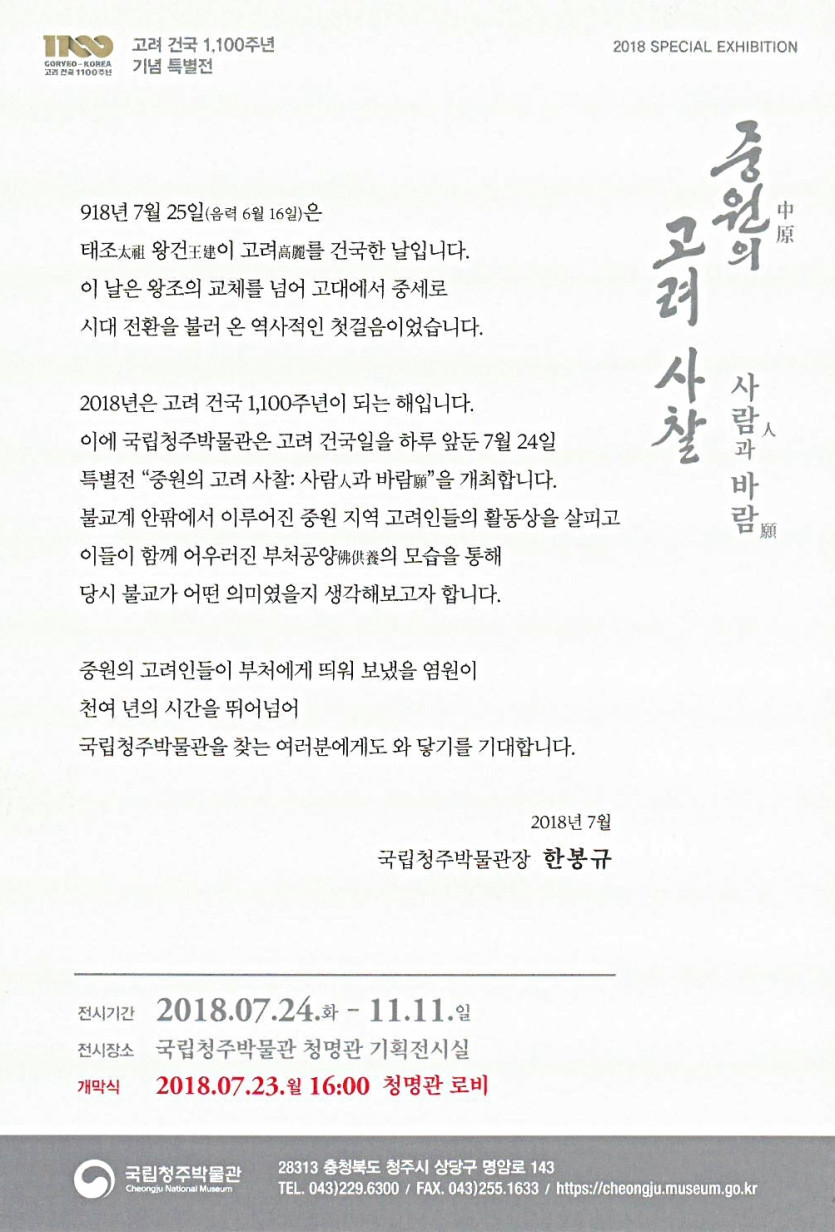 1100
GORYEO-KOREA
고려 건국 1100주년
고려 건국 1,100주년
기념 특별전
2018 SPECIAL EXHIBITION
중원의 中原
고려 사찰
사람人과 바람願
918년 7월 25일(음력 6월 16일)은
태조太祖 왕건王建이 고려高麗를 건국한 날입니다.
이 날은 왕조의 교체를 넘어 고대에서 중세로
시대 전환을 불러 온 역사적인 첫걸음이었습니다.
2018년은 고려 건국 1,100주년이 되는 해입니다.
이에 국립청주박물관은 고려 건국일을 하루 앞둔 7월 24일
특별전 “중원의 고려 사찰: 사람人과 바람願”을 개최합니다.
불교계 안팎에서 이루어진 중원 지역 고려인들의 활동상을 살피고
이들이 함께 어우러진 부처공양佛供養의 모습을 통해
당시 불교가 어떤 의미였을지 생각해보고자 합니다.
중원의 고려인들이 부처에게 띄워 보냈을 염원이
천여 년의 시간을 뛰어넘어
국립청주박물관을 찾는 여러분에게도 와 닿기를 기대합니다.
2018년 7월
국립청주박물관장 한봉규
전시기간 2018.07.24.화 - 11.11.일
전시장소 국립청주박물관 청명관 기획전시실
개막식 2018.07.23.월 16:00 청명관 로비
국립청주박물관
Cheongju National Museum
28313 충청북도 청주시 상당구 명암로 143
TEL. 043)229.6300 / FAX. 043)255.1633 / https://cheongju.museum.go.kr